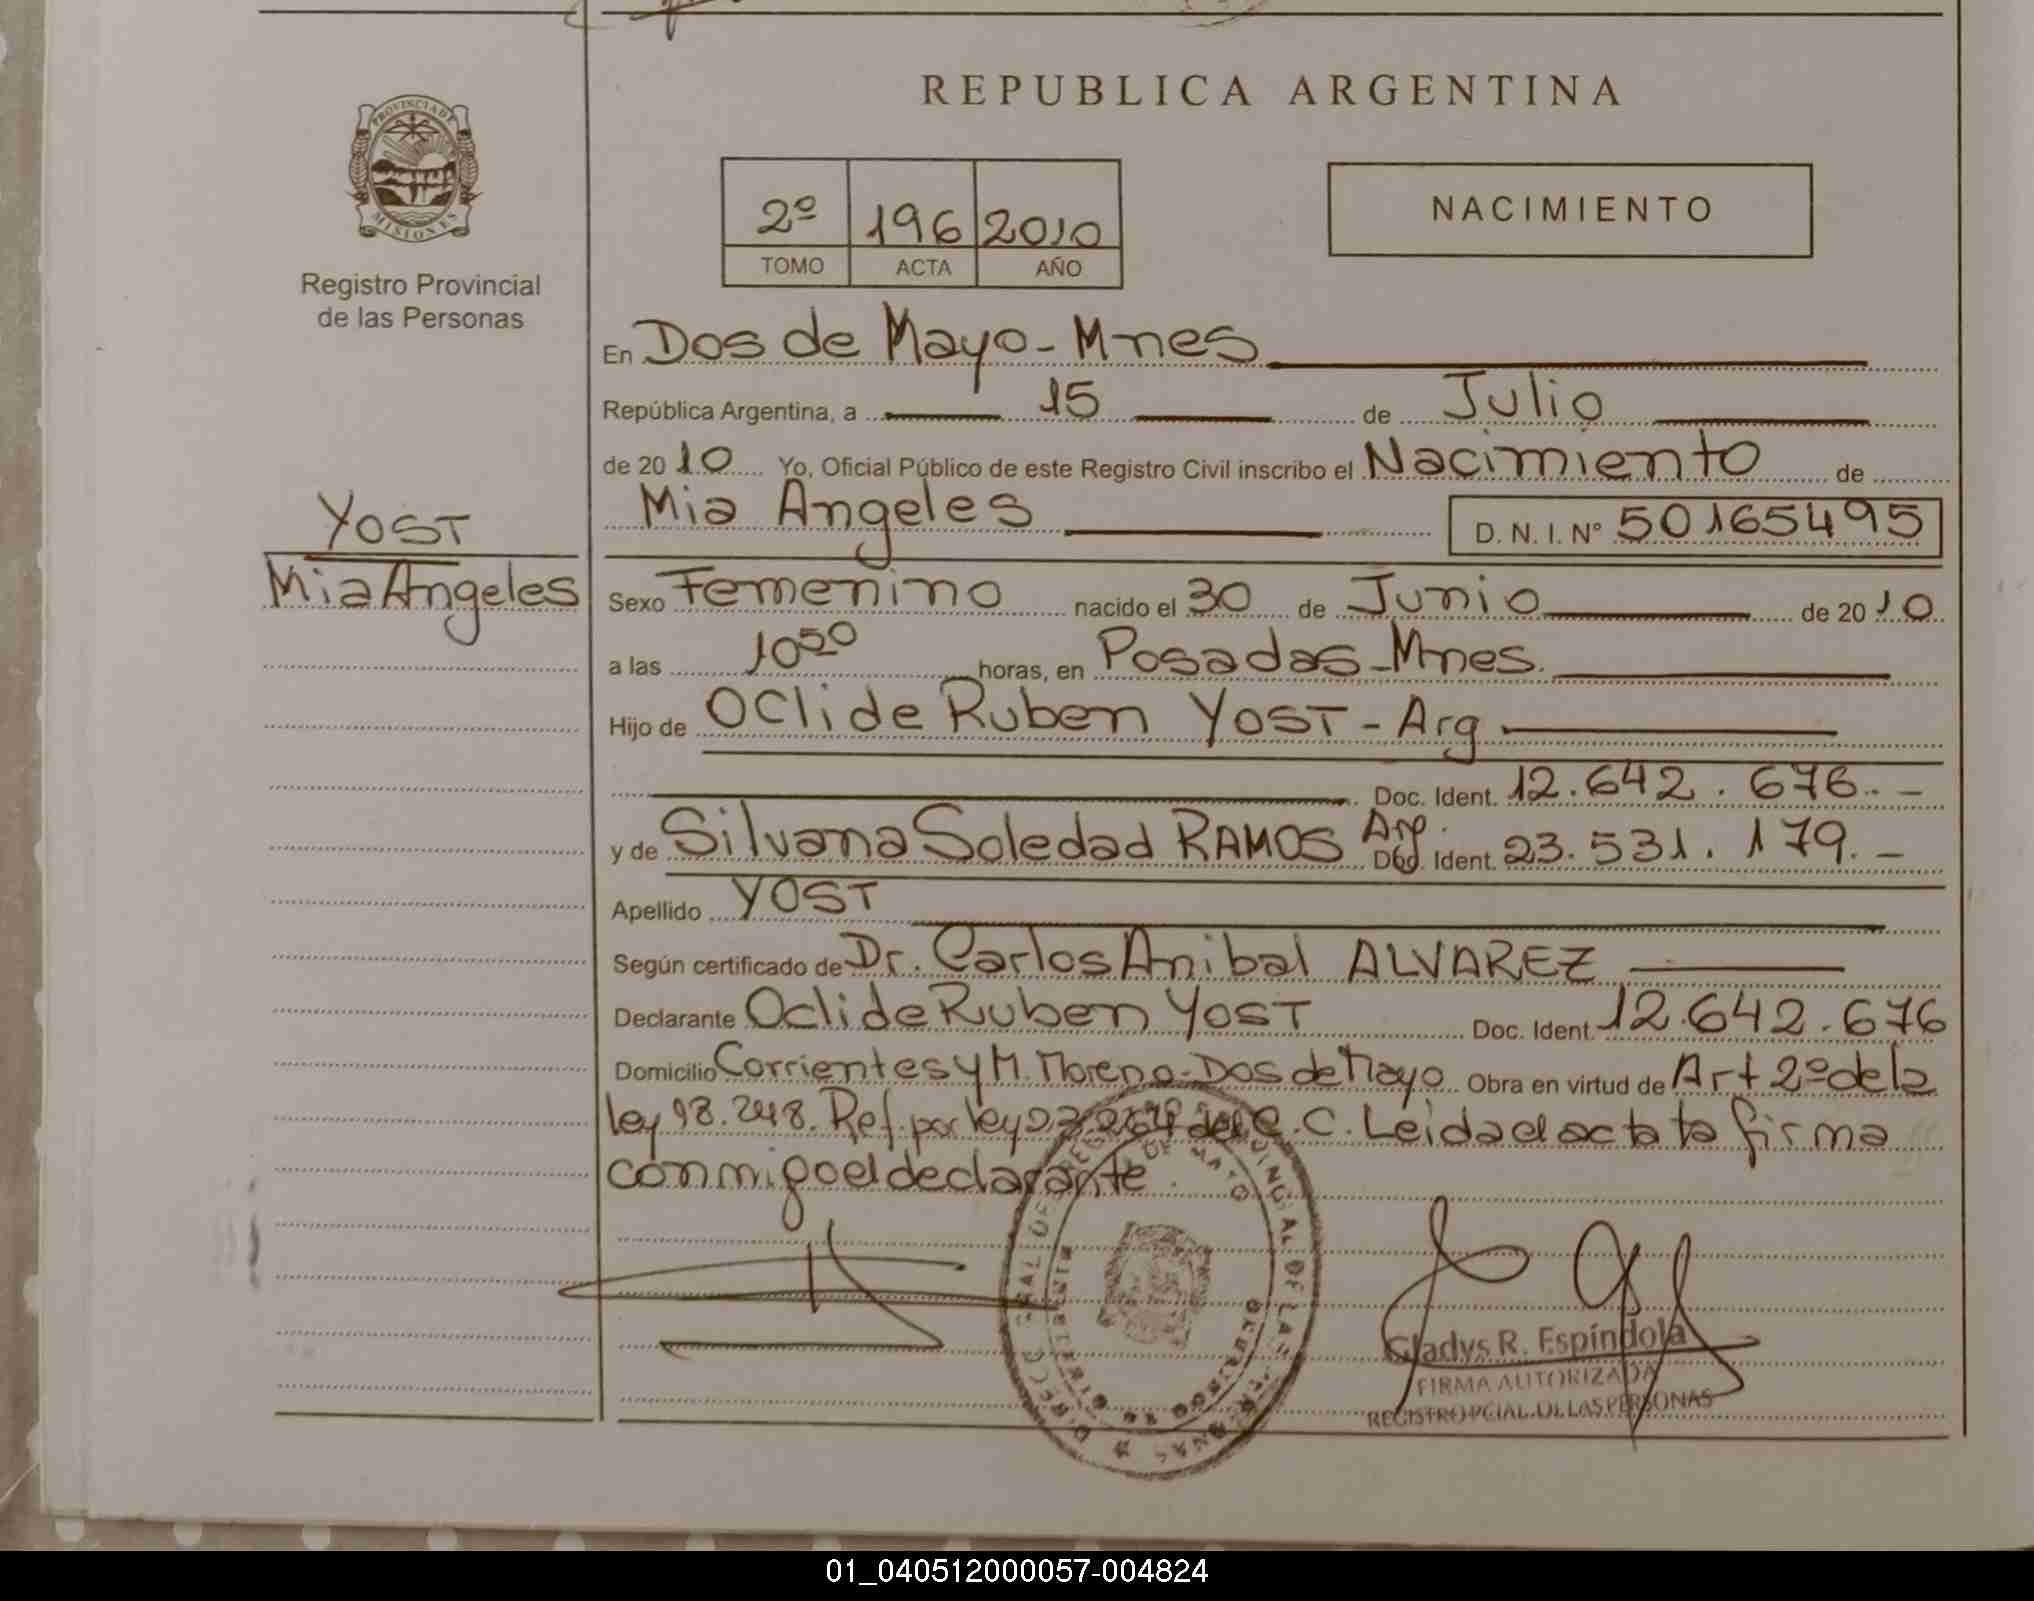 REPUBLICA ARGENTINA
PROVINCIA DE
MISIONES
Registro Provincial
de las Personas
2º 196 2010
TOMO ACTA AÑO
NACIMIENTO
YOST
Mia Angeles
En Dos de Mayo - Mnes
República Argentina, a 15 de Julio
de 2010 Yo, Oficial Público de este Registro Civil inscribo el Nacimiento de
Mia Angeles D. N. I. Nº 50165495
Sexo Femenino nacido el 30 de Junio de 2010
a las 10⁵⁰ horas, en Posadas - Mnes.
Hijo de Oclide Ruben YOST - Arg
Doc. Ident. 12.642.676.-
y de Silvana Soledad RAMOS Arg. Doc. Ident. 23.531.179.-
Apellido YOST
Según certificado de Dr. Carlos Anibal ALVAREZ
Declarante Oclide Ruben YOST Doc. Ident. 12.642.676
Domicilio Corrientes y M. Moreno - Dos de Mayo Obra en virtud de Art 2º de la
ley 18.248. Ref. por ley 23.264 del C.C. Leida el acta la firma
conmigo el declarante.
Gladys R. Espíndola
FIRMA AUTORIZADA
REGISTRO PCIAL. DE LAS PERSONAS
01_040512000057-004824